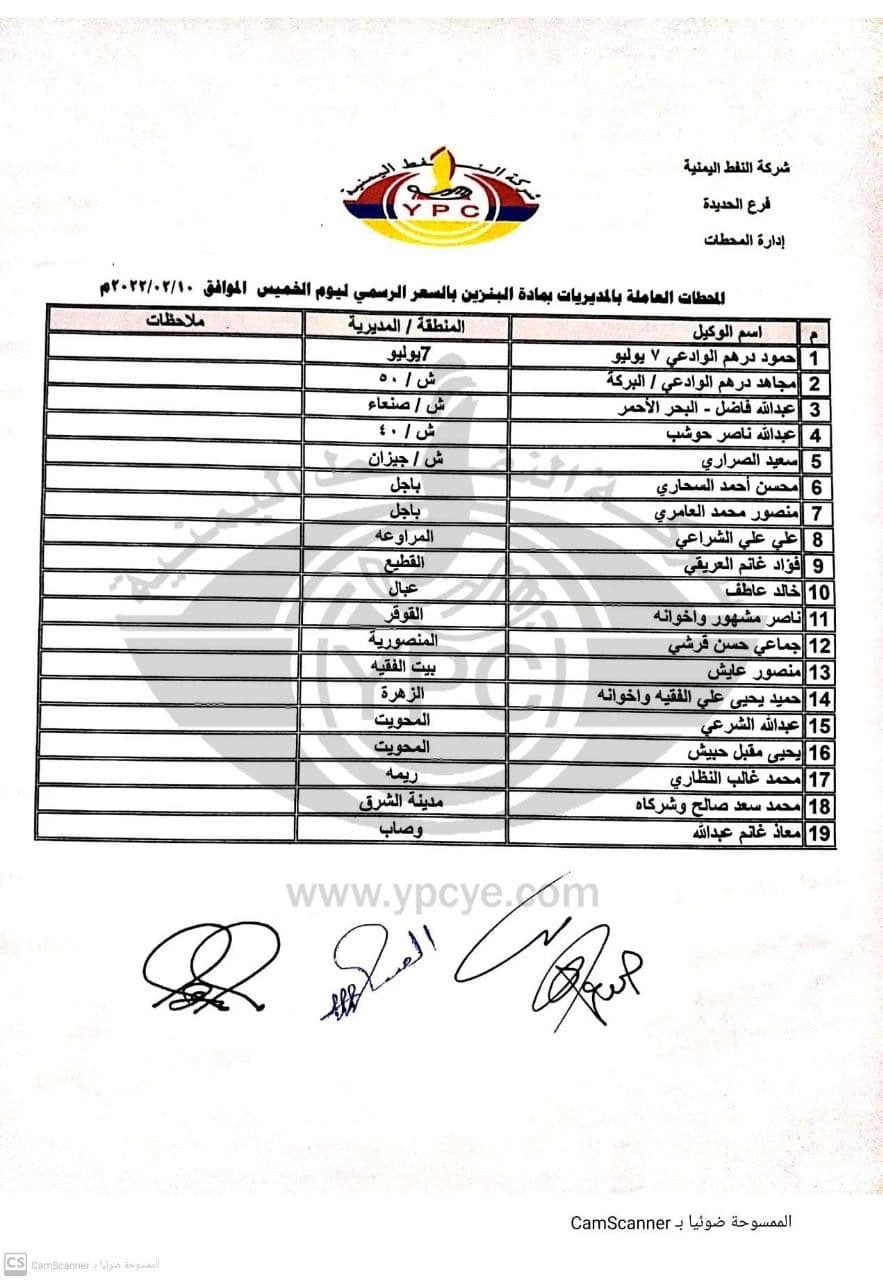 شركة النفط اليمنية
YPC
شركة النفط اليمنية
فرع الحديدة
إدارة المحطات
المحطات العاملة بالمديريات بمادة البنزين بالسعر الرسمي ليوم الخميس الموافق ٢٠٢٢/٠٢/١٠م
م اسم الوكيل المنطقة / المديرية ملاحظات
1 حمود درهم الوادعي ٧ يوليو 7يوليو
2 مجاهد درهم الوادعي / البركة ش / ٥٠
3 عبدالله فاضل - البحر الأحمر ش / صنعاء
4 عبدالله ناصر حوشب ش / ٤٠
5 سعيد الصراري ش / جيزان
6 محسن أحمد السحاري باجل
7 منصور محمد العامري باجل
8 علي علي الشراعي المراوعه
9 فؤاد غانم العريقي القطيع
10 خالد عاطف عبال
11 ناصر مشهور واخوانه القوقر
12 جماعي حسن قرشي المنصورية
13 منصور عايش بيت الفقيه
14 حميد يحيى علي الفقيه واخوانه الزهرة
15 عبدالله الشرعي المحويت
16 يحيى مقبل حبيش المحويت
17 محمد غالب النظاري ريمه
18 محمد سعد صالح وشركاه مدينة الشرق
19 معاذ غانم عبدالله وصاب
شركة النفط اليمنية
YPC
www.ypcye.com
الممسوحة ضوئيا بـ CamScanner
CS CamScanner الممسوحة ضوئيا بـ